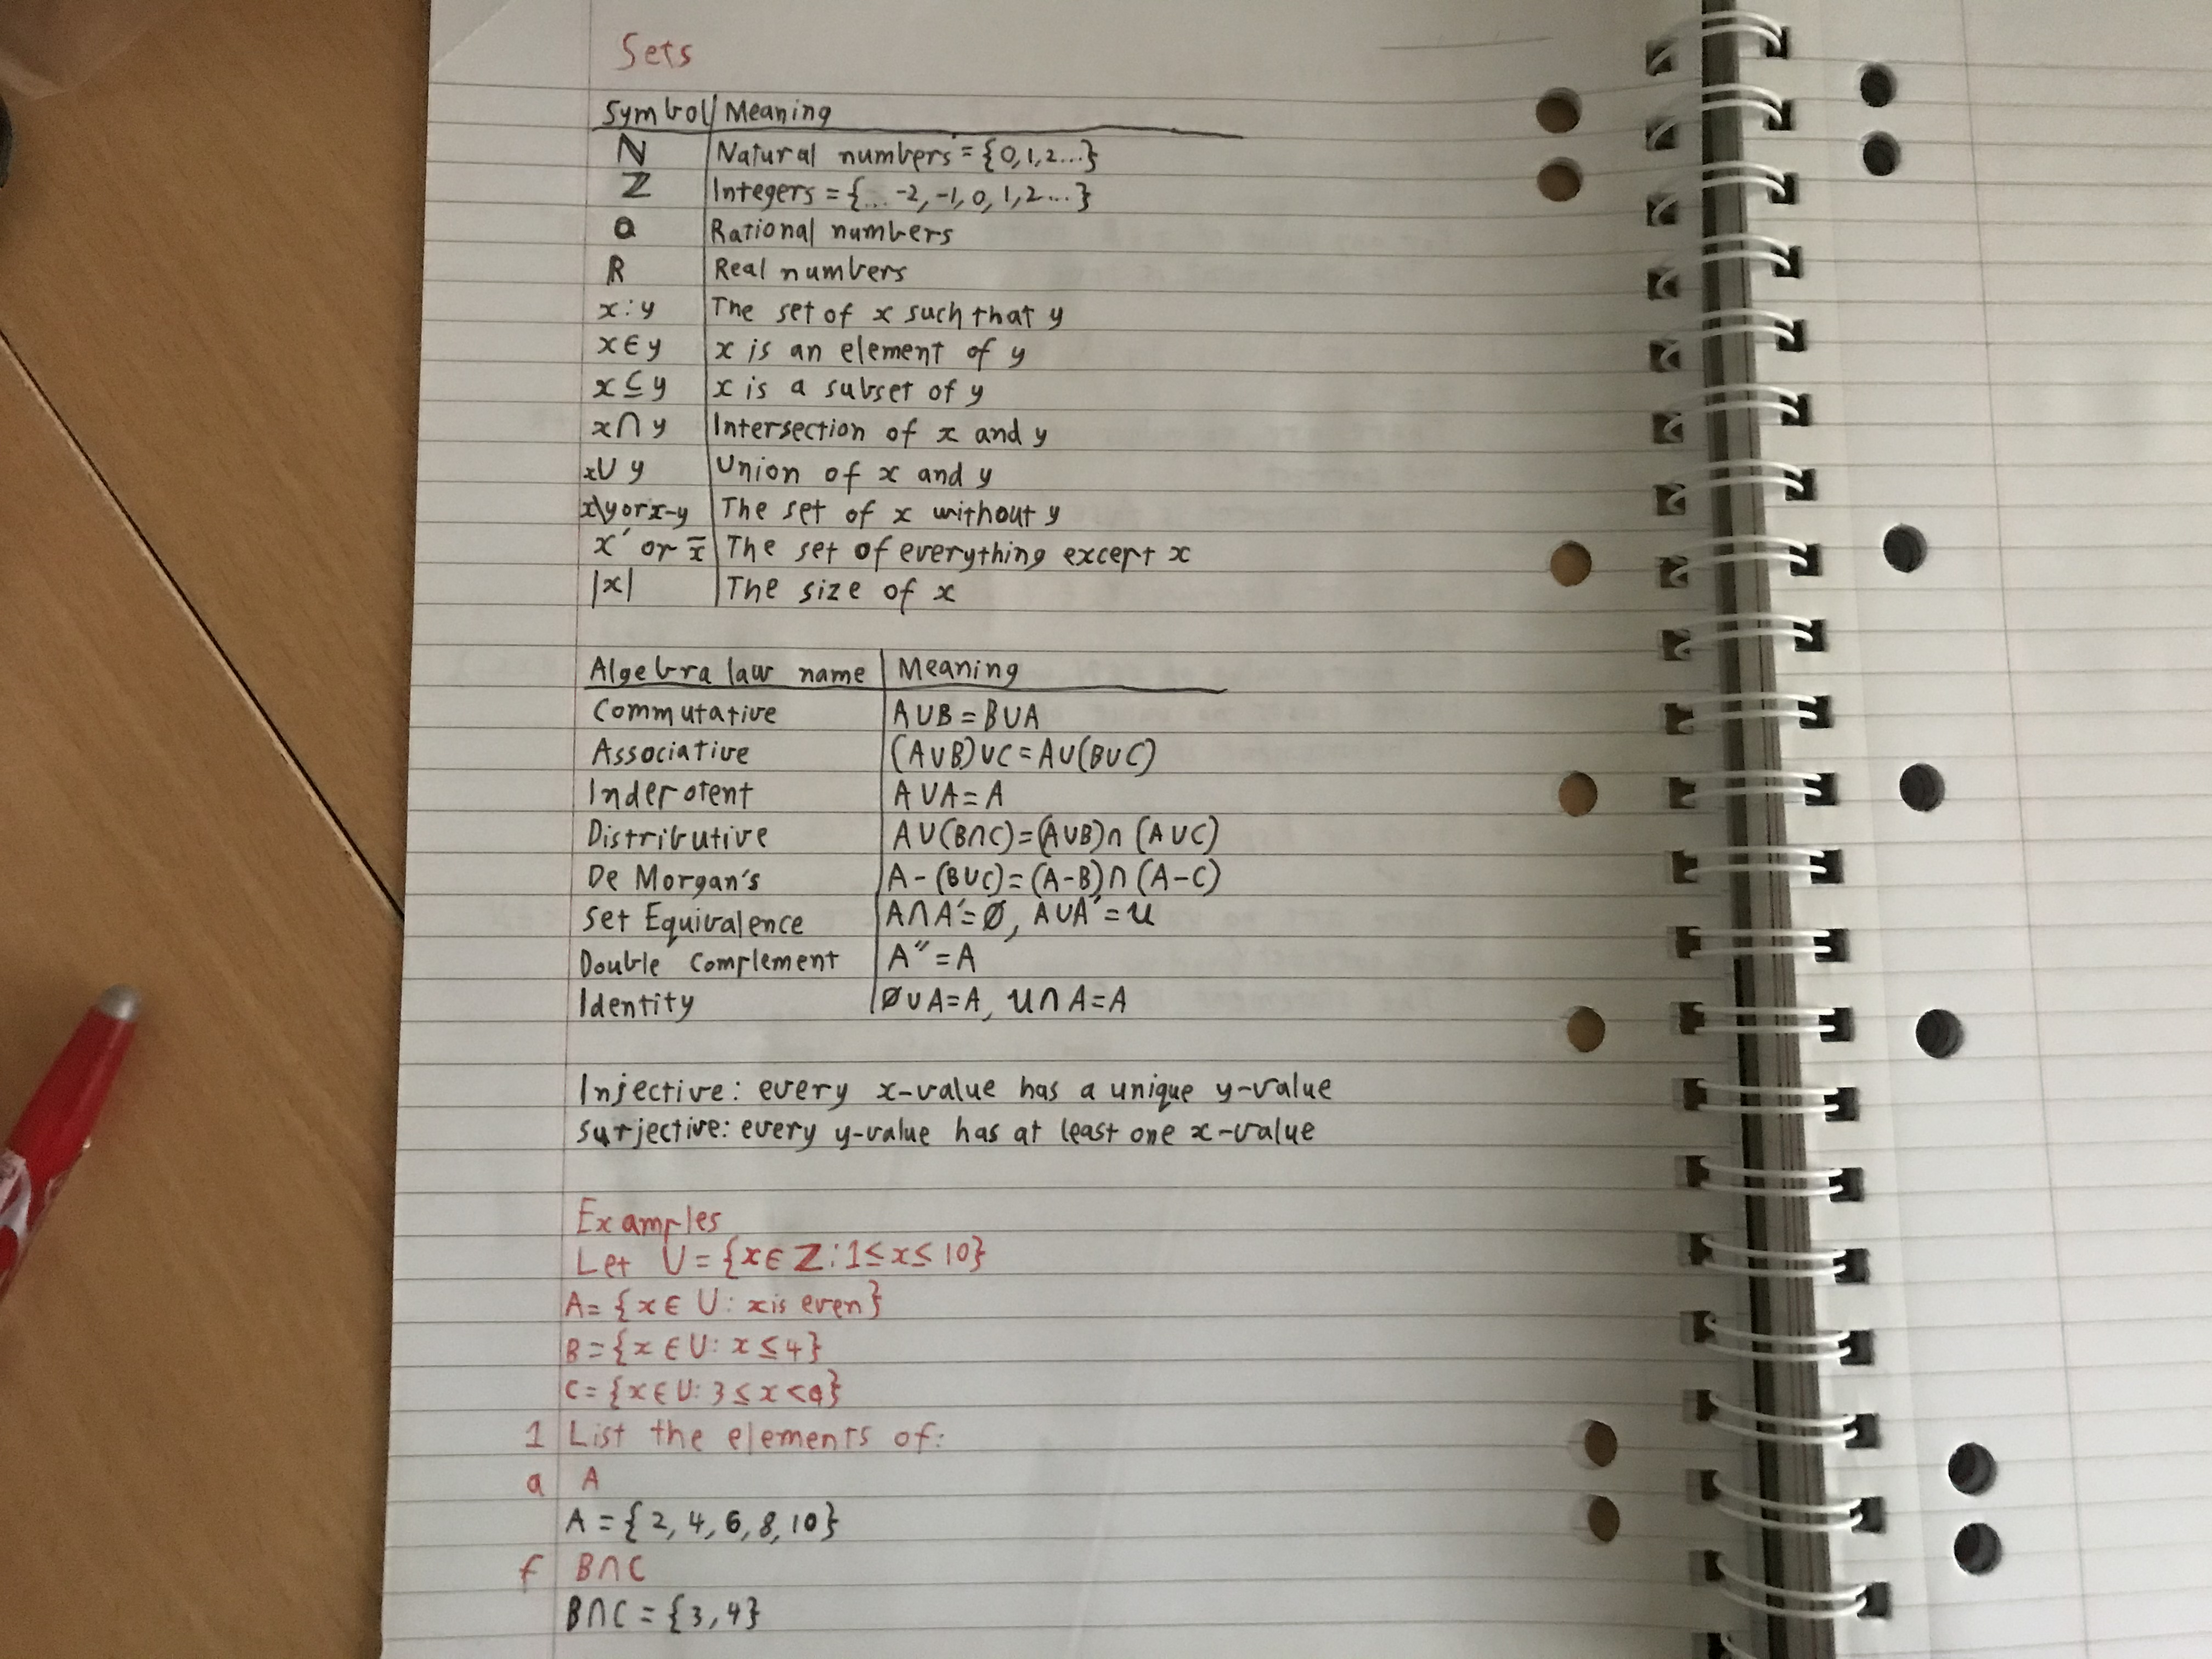 Sets
Symbol Meaning
ℕ Natural numbers = {0,1,2...}
ℤ Integers = {... -2, -1, 0, 1, 2...}
Q Rational numbers
R Real numbers
x:y The set of x such that y
x∈y x is an element of y
x⊆y x is a subset of y
x∩y Intersection of x and y
x∪y Union of x and y
x\y or x-y The set of x without y
x′ or x̅ The set of everything except x
|x| The size of x
Algebra law name Meaning
Commutative A∪B=B∪A
Associative (A∪B)∪C=A∪(B∪C)
Inderotent A∪A=A
Distributive A∪(B∩C)=(A∪B)∩(A∪C)
De Morgan's A-(B∪C)=(A-B)∩(A-C)
Set Equivalence A∩A′=∅, A∪A′=U
Double Complement A″=A
Identity ∅∪A=A, U∩A=A
Injective: every x-value has a unique y-value
Surjective: every y-value has at least one x-value
Examples
Let U={x∈ℤ:1≤x≤10}
A={x∈U: x is even}
B={x∈U: x≤4}
C={x∈U: 3≤x<9}
1 List the elements of:
a A
A={2, 4, 6, 8, 10}
f B∩C
B∩C={3,4}